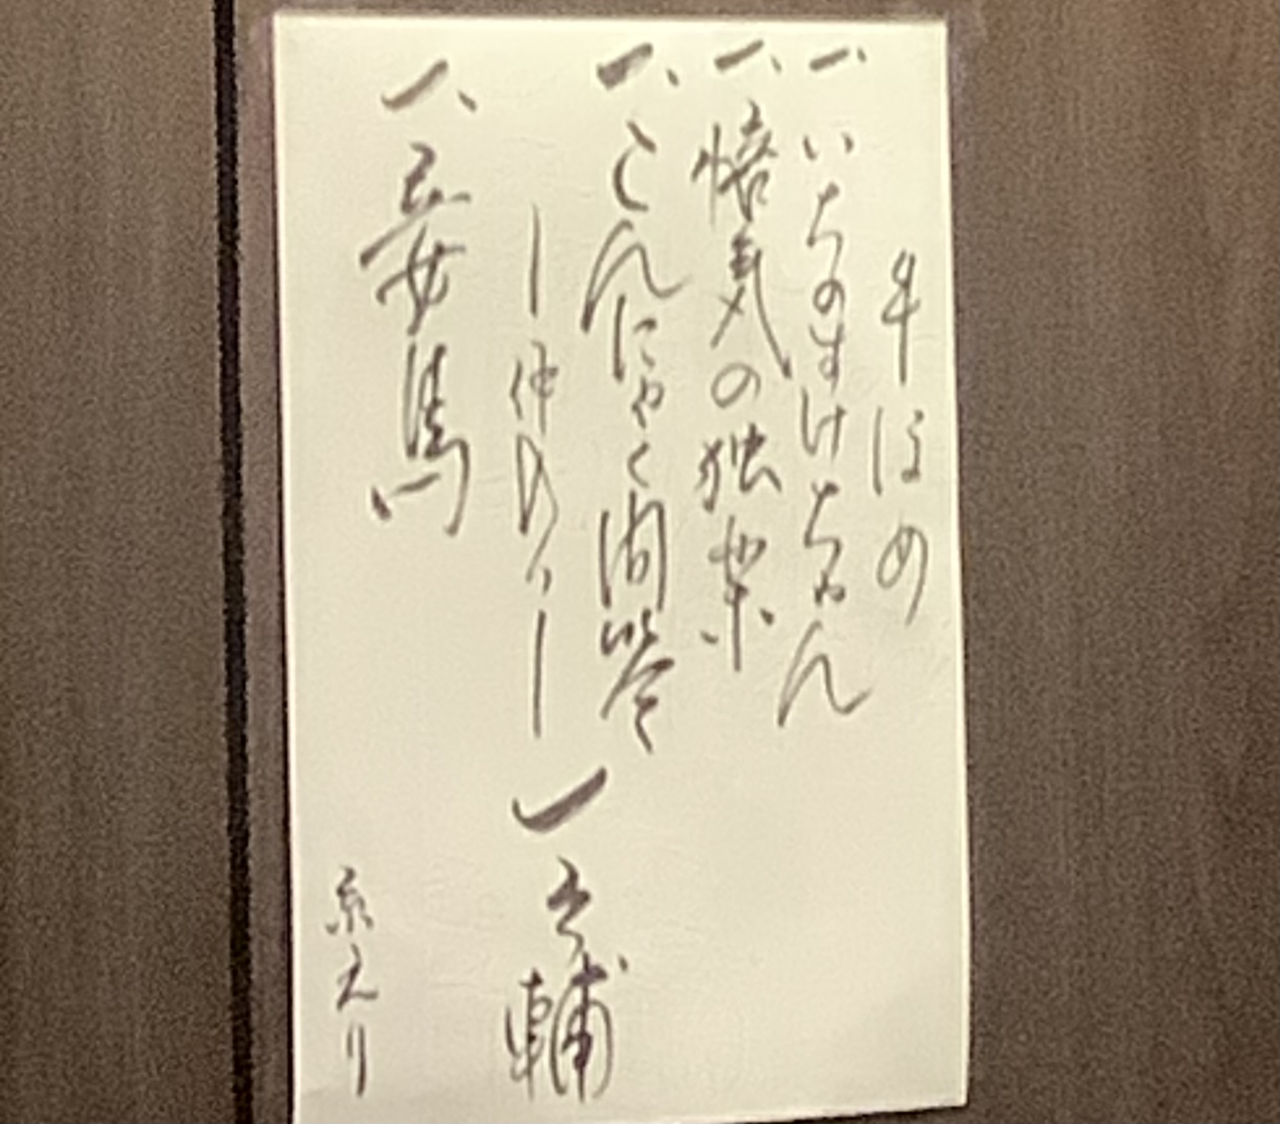 牛ほめ
一、いちのすけちゃん
一、悋気の独楽
一、こんにゃく問答
ー仲入りー
一、妾馬
一之輔